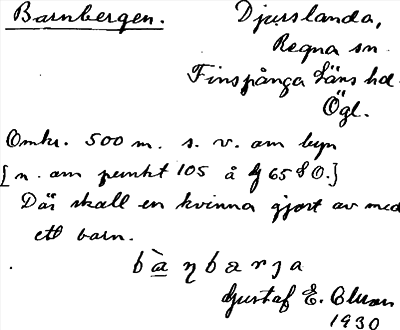 Barnbergen. Djurslanda,
Regna sn.
Finspånga läns hd.
Ögl.
Omkr. 500 m. s. v. om byn
[n. om punkt 105 å G 65 8 O.]
Där skall en kvinna gjort av med
ett barn.
bàηbarja
Gustaf E.
1930